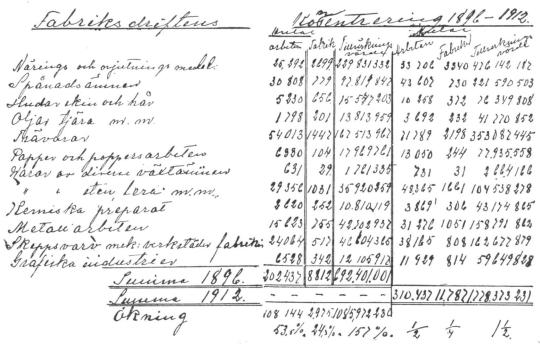 Fabriksdriftens Koncentrering 1896-1912.
Antal Antal
arbetare Fabrik Tillverknings värde Arbetare Fabrik Tillverkning värde
Närings och njutningsmedel 25,292 2899 229,831332 33 706 3340 476 142 187
Spånadsämnen 30 808 779 97,819847 43 607 730 221 590 503
Hudar skin och hår 5.230 656 15,577203 10 258 372 76 349 808
Oljor tjära m. m. 1798 201 13,813959 3 692 232 41 770 852
Trävaror 54013 1447 167,513967 71789 2198 353082445
Papper och pappersarbeten 6380 104 17969761 13 050 244 77,935,558
Varor av diverse växtämnen 631 29 1761335 731 31 2664166
" " sten, lera m.m. 29,356 1031 35920859 48365 1661 104538278
Kemiska preparat 2620 252 10.810,19 3869 306 43174865
Metallarbeten 15623 755 42702937 31276 1051 158791 863
Skeppsvarv mek. verkstäder fabrik 24064 517 46604365 38165 808 162677879
Grafiska industrier 6528 342 12105917 11929 814 59649828
Summa 1896. 202437 8812 692,401,001
Summa 1912. - - - - - - 310.437 11,787 1,778,373 231
Ökning 108 144 2975 1085972 230
53.5% 24,5% 157% 1/2 1/4 1 1/2